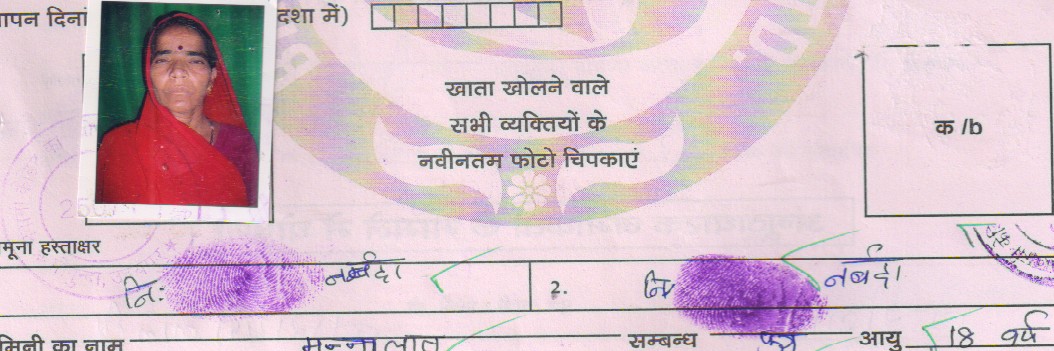 दशा में)
खाता खोलने वाले
सभी व्यक्तियों के
नवीनतम फोटो चिपकाएं
क /b
TD.
मूना हस्ताक्षर
नि: नर्बदा 2. नि नर्बदा
मिनी का नाम सम्बन्ध पुत्र आयु 18 वर्ष